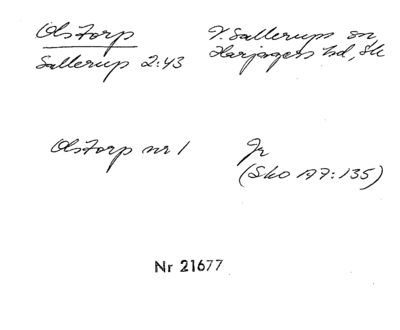 Olstorp
V. Sallerups sn,
Sallerup 2:43
Harjagers hd, Sk
Olstorp nr 1
Jr
(Sko A7:135)
Nr 21677